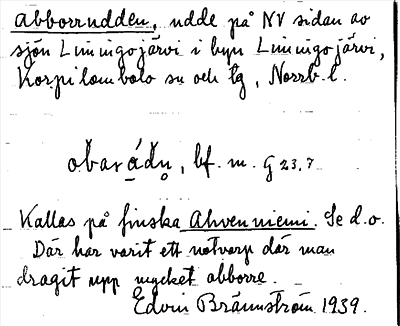 Abborrudden, udde på NV sidan av
sjön Liningojärvi i byn Liningojärvi,
Korpilombolo sn och tg, Norrb. l.
bf. m. G 23.7
Kallas på finska Ahvenniemi. Se d.o.
Där har varit ett notvarp där man
dragit upp mycket abborre.
Edvin Brännström 1939.